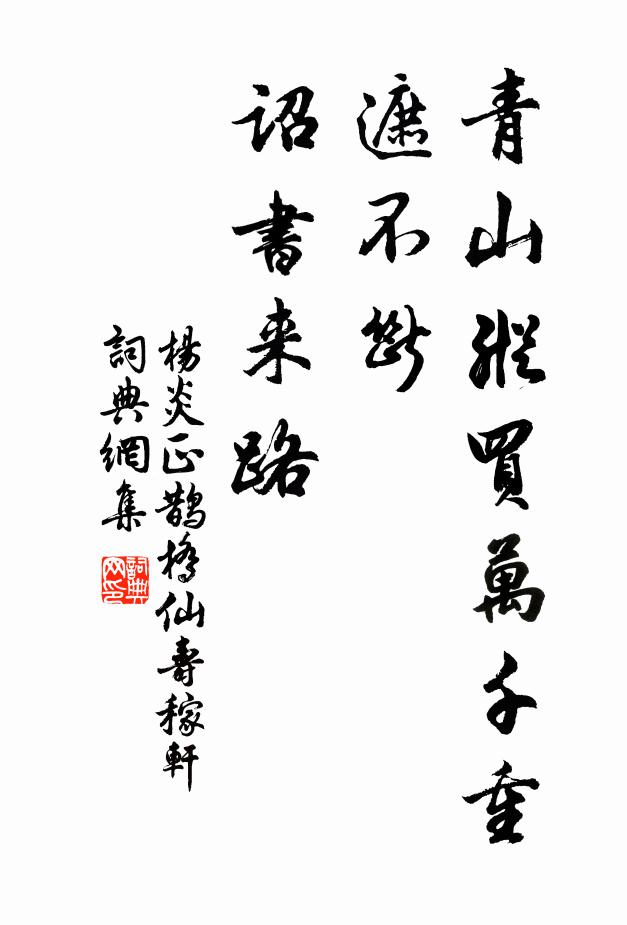 青山縱買萬千重
遮不斷
詔書来路
楊炎正鵲橋仙壽稼軒
詞典網集
詞典网印